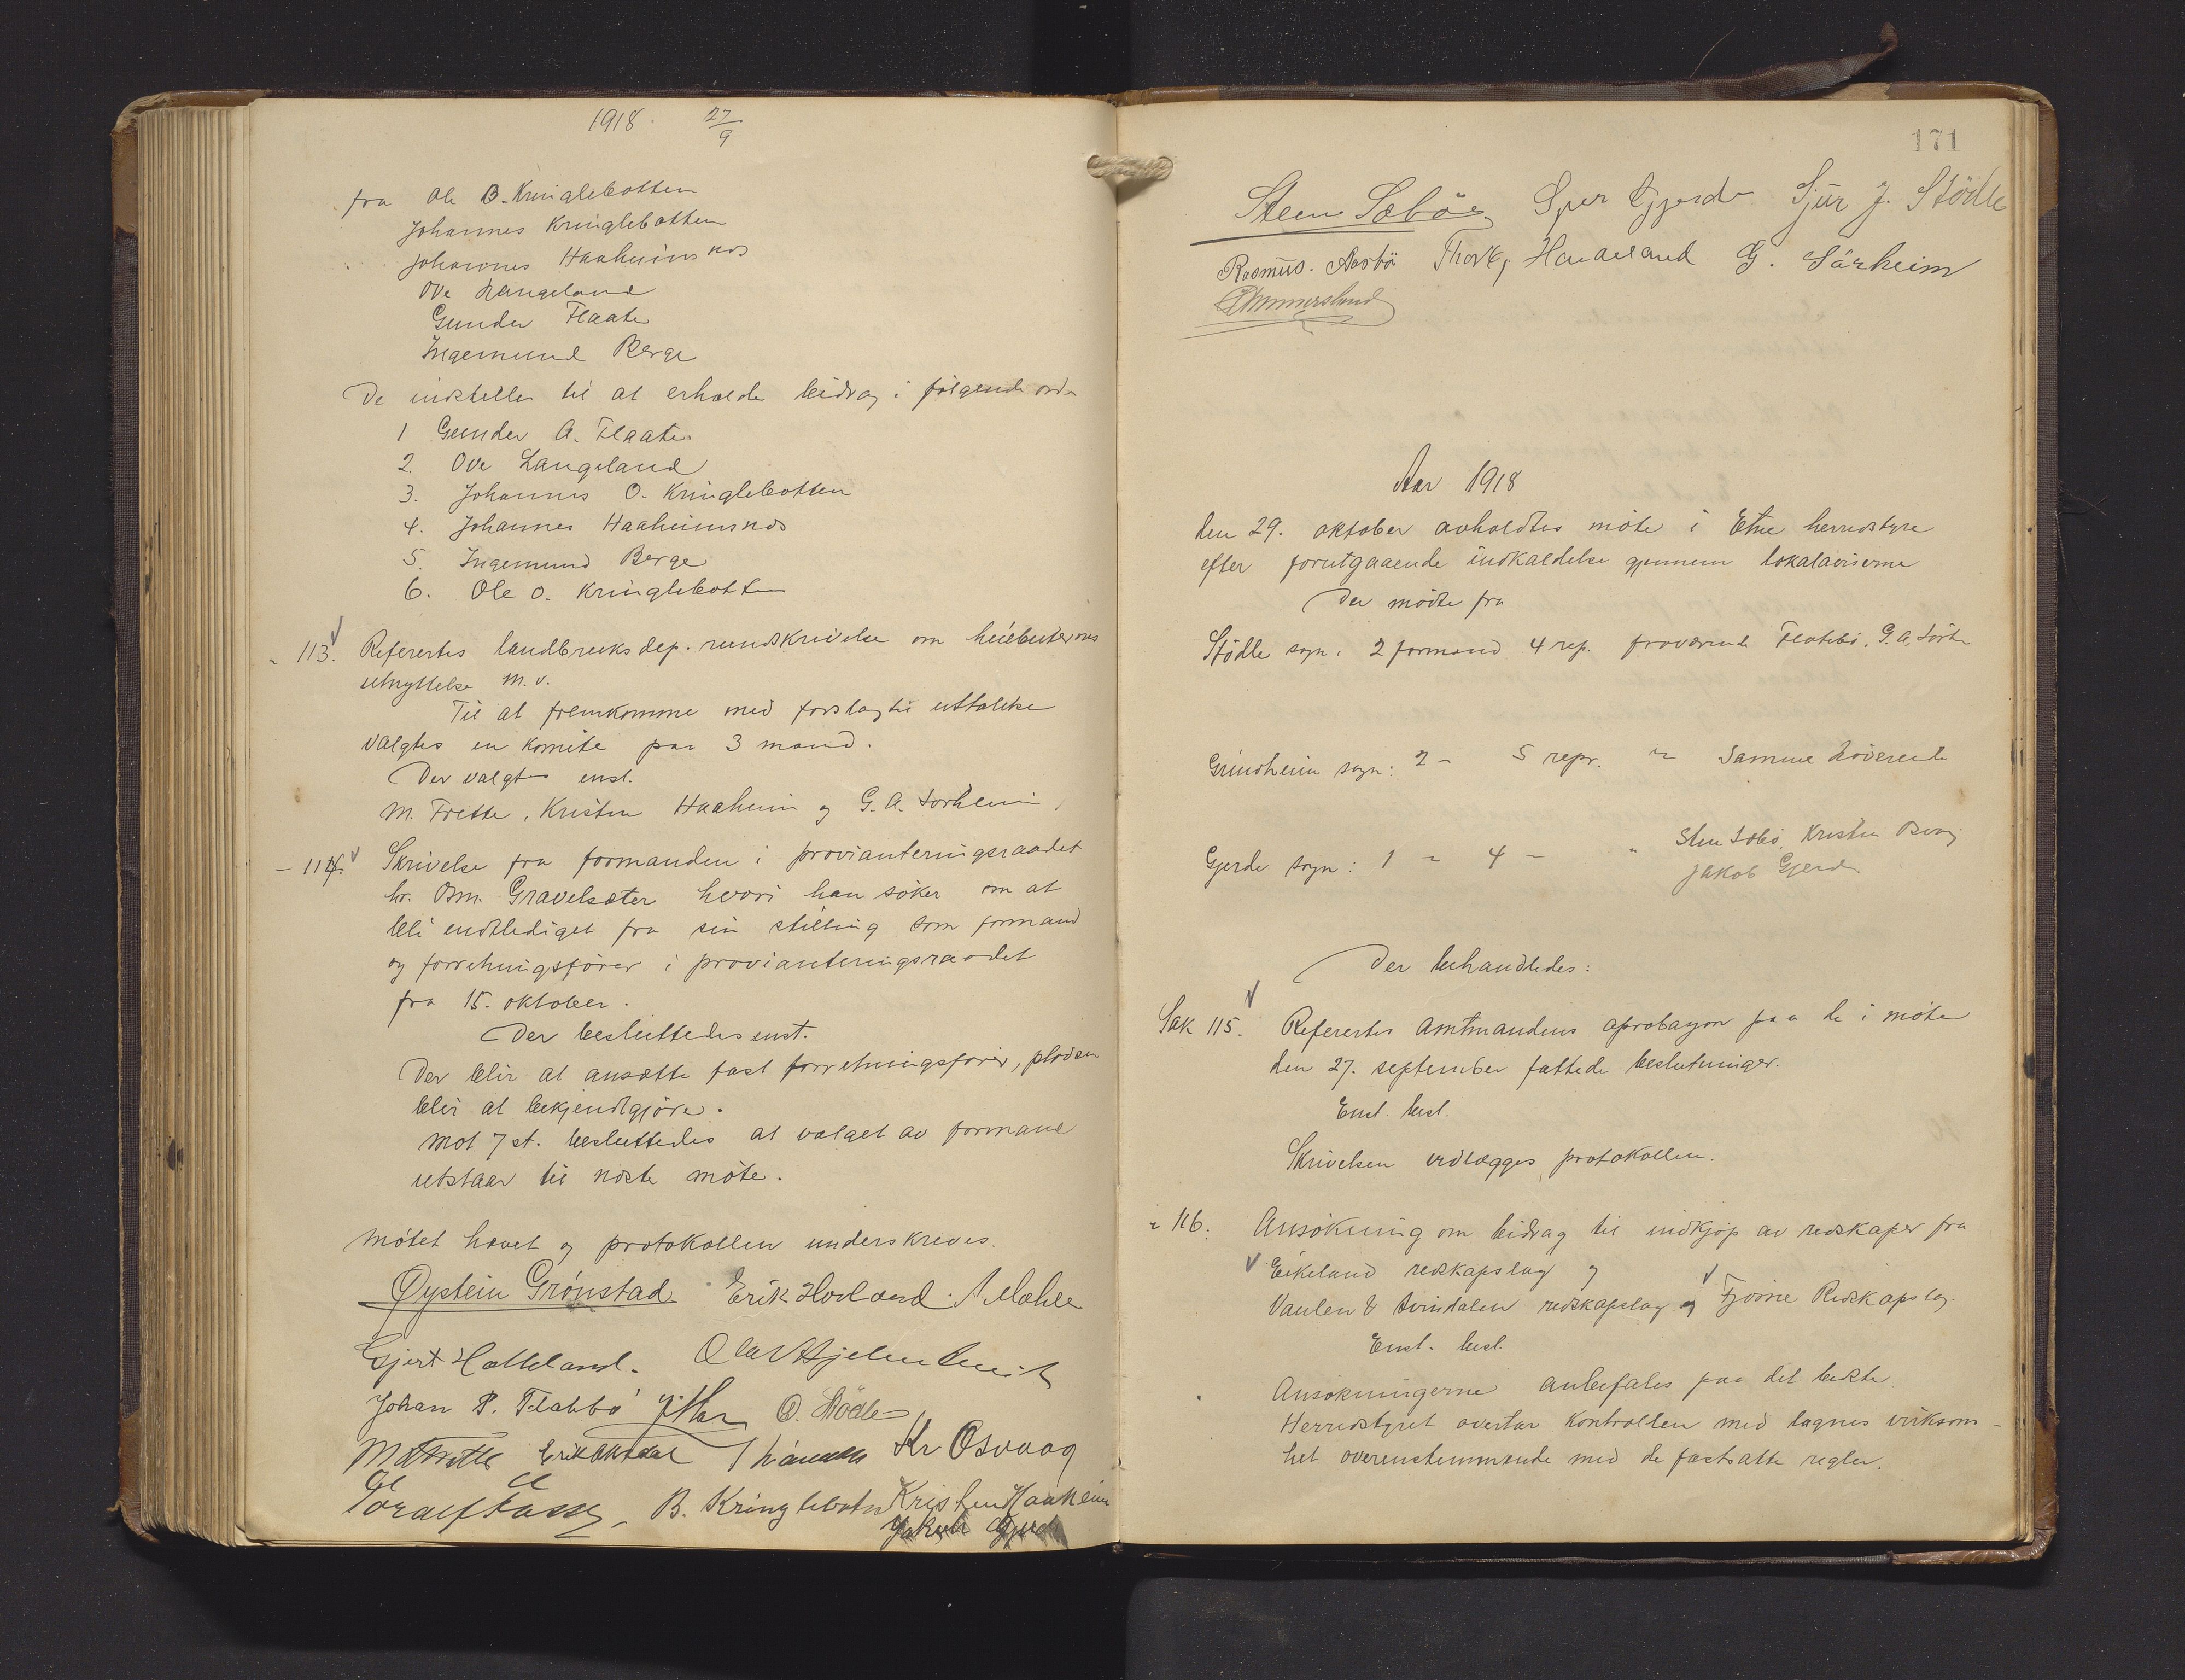 1918. 27/9
fra Ole B. Kringlebotten
Johannes Kringlebotten
Johannes Haaheimsnes
Ove Langeland
Gunder Flaate
Ingemund Berge
De indstilles til at erholde bidrag i følgende orden
1 Gunder A. Flaate
2. Ove Langeland
3. Johannes O. Kringlebotten
4. Johannes Haaheimsnes
5. Ingemund Berge
6. Ole O. Kringlebotten
" 113. Referertes landbruksdep. rundskrivelse om
utnyttelse m.v.
Til at fremkomme med forslag til uttalelse
valgtes en komite paa 3 mand.
Der valgtes enst.
M. Frette, Kristen Haaheim og G. A. Sørheim,
- 114. Skrivelse fra formanden i provianteringsraadet
hr. Gravelsæter hvori han søker om at
bli endtlediget fra sin stilling som formand
og forretningsfører i provianteringsraadet
fra 15. oktober.
Der besluttedes enst.
Der blir at ansætte fast forretningsfører, posten
blir at bekjendtgjøre.
Mot 7 st. besluttedes at valget av formand
utstaar til næste møte.
Møtet hævet og protokollen underskreves.
Øystein Grønstad Erik Hovland. A Mæhle
Gjert Hatteland. Olav Hjelmtveit
Johan P. Flatebø O. Stødle
M Frette Kr Osvaag
B. Kringlebotn Kristen Haaheim
Jakob Gjerde
171
Steen Sæbøe Sjur Gjerde Sjur J. Stødle
Rasmus. Aarbø Thork, Handeland G. Sørheim
Ammersland
Aar 1918
den 29. oktober avholdtes møte i Etne herredstyre
efter forutgaaende indkaldelse gjennem lokalaviserne
Der mødte fra
Stødle sogn: 2 formænd 4 rep. fraværende Flatebø, G. A. Sørh
Grindheim sogn: 2 - 5 repr. " Samme
Gjerde sogn: 1 " 4 - " Sten Sæbø, Kristen Osvåg
Jakob Gjerde
Der behandledes:
Sak 115. Referertes Amtmandens aprobasjon paa de i møte
den 27. september fattede beslutninger.
Enst. besl.
Skrivelsen vedlægges protokollen.
" 116. Ansøkning om bidrag til indkjøp av redskaper fra
Eikeland redskapslag og
Vaulen & Avindalen redskapslag og Fjøsne Redskapslag.
Enst. besl.
Ansøkningerne anbefales paa det bedste.
Herredstyret overtar kontrollen med lagnes virksom-
het overenstemmende med de fastsatte regler.